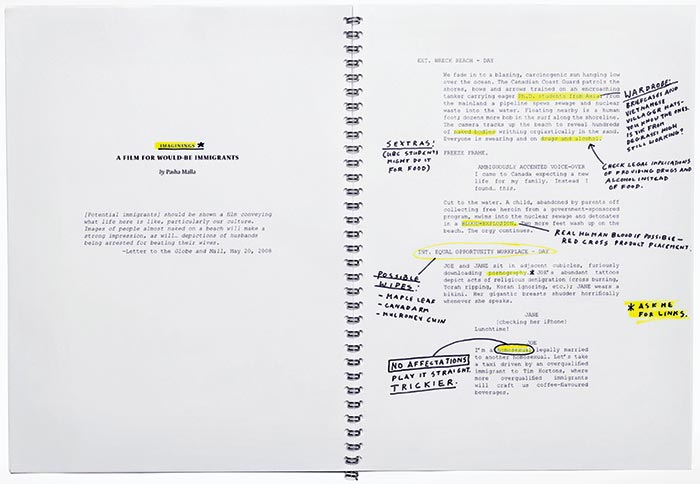 IMAGININGS ★
A FILM FOR WOULD-BE IMMIGRANTS
by Pasha Malla
[Potential immigrants] should be shown a film conveying
what life here is like, particularly our culture.
Images of people almost naked on a beach will make a
strong impression, as will… depictions of husbands
being arrested for beating their wives.
—Letter to the Globe and Mail, May 20, 2008
EXT. WRECK BEACH - DAY
We fade in to a blazing, carcinogenic sun hanging low
over the ocean. The Canadian Coast Guard patrols the
shores, bows and arrows trained on an encroaching
tanker carrying eager Ph.D. students from Asia. From
the mainland a pipeline spews sewage and nuclear
waste into the water. Floating nearby is a human
foot; dozens more bob in the surf along the shoreline.
The camera tracks up the beach to reveal hundreds
of naked bodies writhing orgiastically in the sand.
Everyone is swearing and on drugs and alcohol.
FREEZE FRAME.
AMBIGUOUSLY ACCENTED VOICE-OVER
I came to Canada expecting a new
life for my family. Instead I
found, this.
Cut to the water. A child, abandoned by parents off
collecting free heroin from a government-sponsored
program, swims into the nuclear sewage and detonates
in a BLOOD-EXPLOSION. Two more feet wash up on the
beach. The orgy continues.
INT. EQUAL OPPORTUNITY WORKPLACE - DAY
JOE and JANE sit in adjacent cubicles, furiously
downloading pornography.* JOE's abundant tattoos
depict acts of religious denigration (cross burning,
Torah ripping, Koran ignoring, etc.); JANE wears a
bikini. Her gigantic breasts shudder horrifically
whenever she speaks.
JANE
(checking her iPhone)
Lunchtime!
JOE
I'm a homosexual legally married
to another homosexual. Let's take
a taxi driven by an overqualified
immigrant to Tim Hortons, where
more overqualified immigrants
will craft us coffee-flavoured
beverages.
SEXTRAS!
(UBC STUDENTS
MIGHT DO IT
FOR FOOD)
WARDROBE:
BRIEFCASES AND
VIETNAMESE
VILLAGER HATS-
YOU KNOW THE ONES.
IS THE FIRM
DEGRASSI HIGH
STILL WORKING?
CHECK LEGAL IMPLICATIONS
OF PROVIDING DRUGS AND
ALCOHOL INSTEAD
OF FOOD.
REAL HUMAN BLOOD IF POSSIBLE-
RED CROSS PRODUCT PLACEMENT.
POSSIBLE
WIPES:
- MAPLE LEAF
- CANADARM
- MULRONEY CHIN
* ASK ME
FOR LINKS.
NO AFFECTATIONS
PLAY IT STRAIGHT.
TRICKIER.